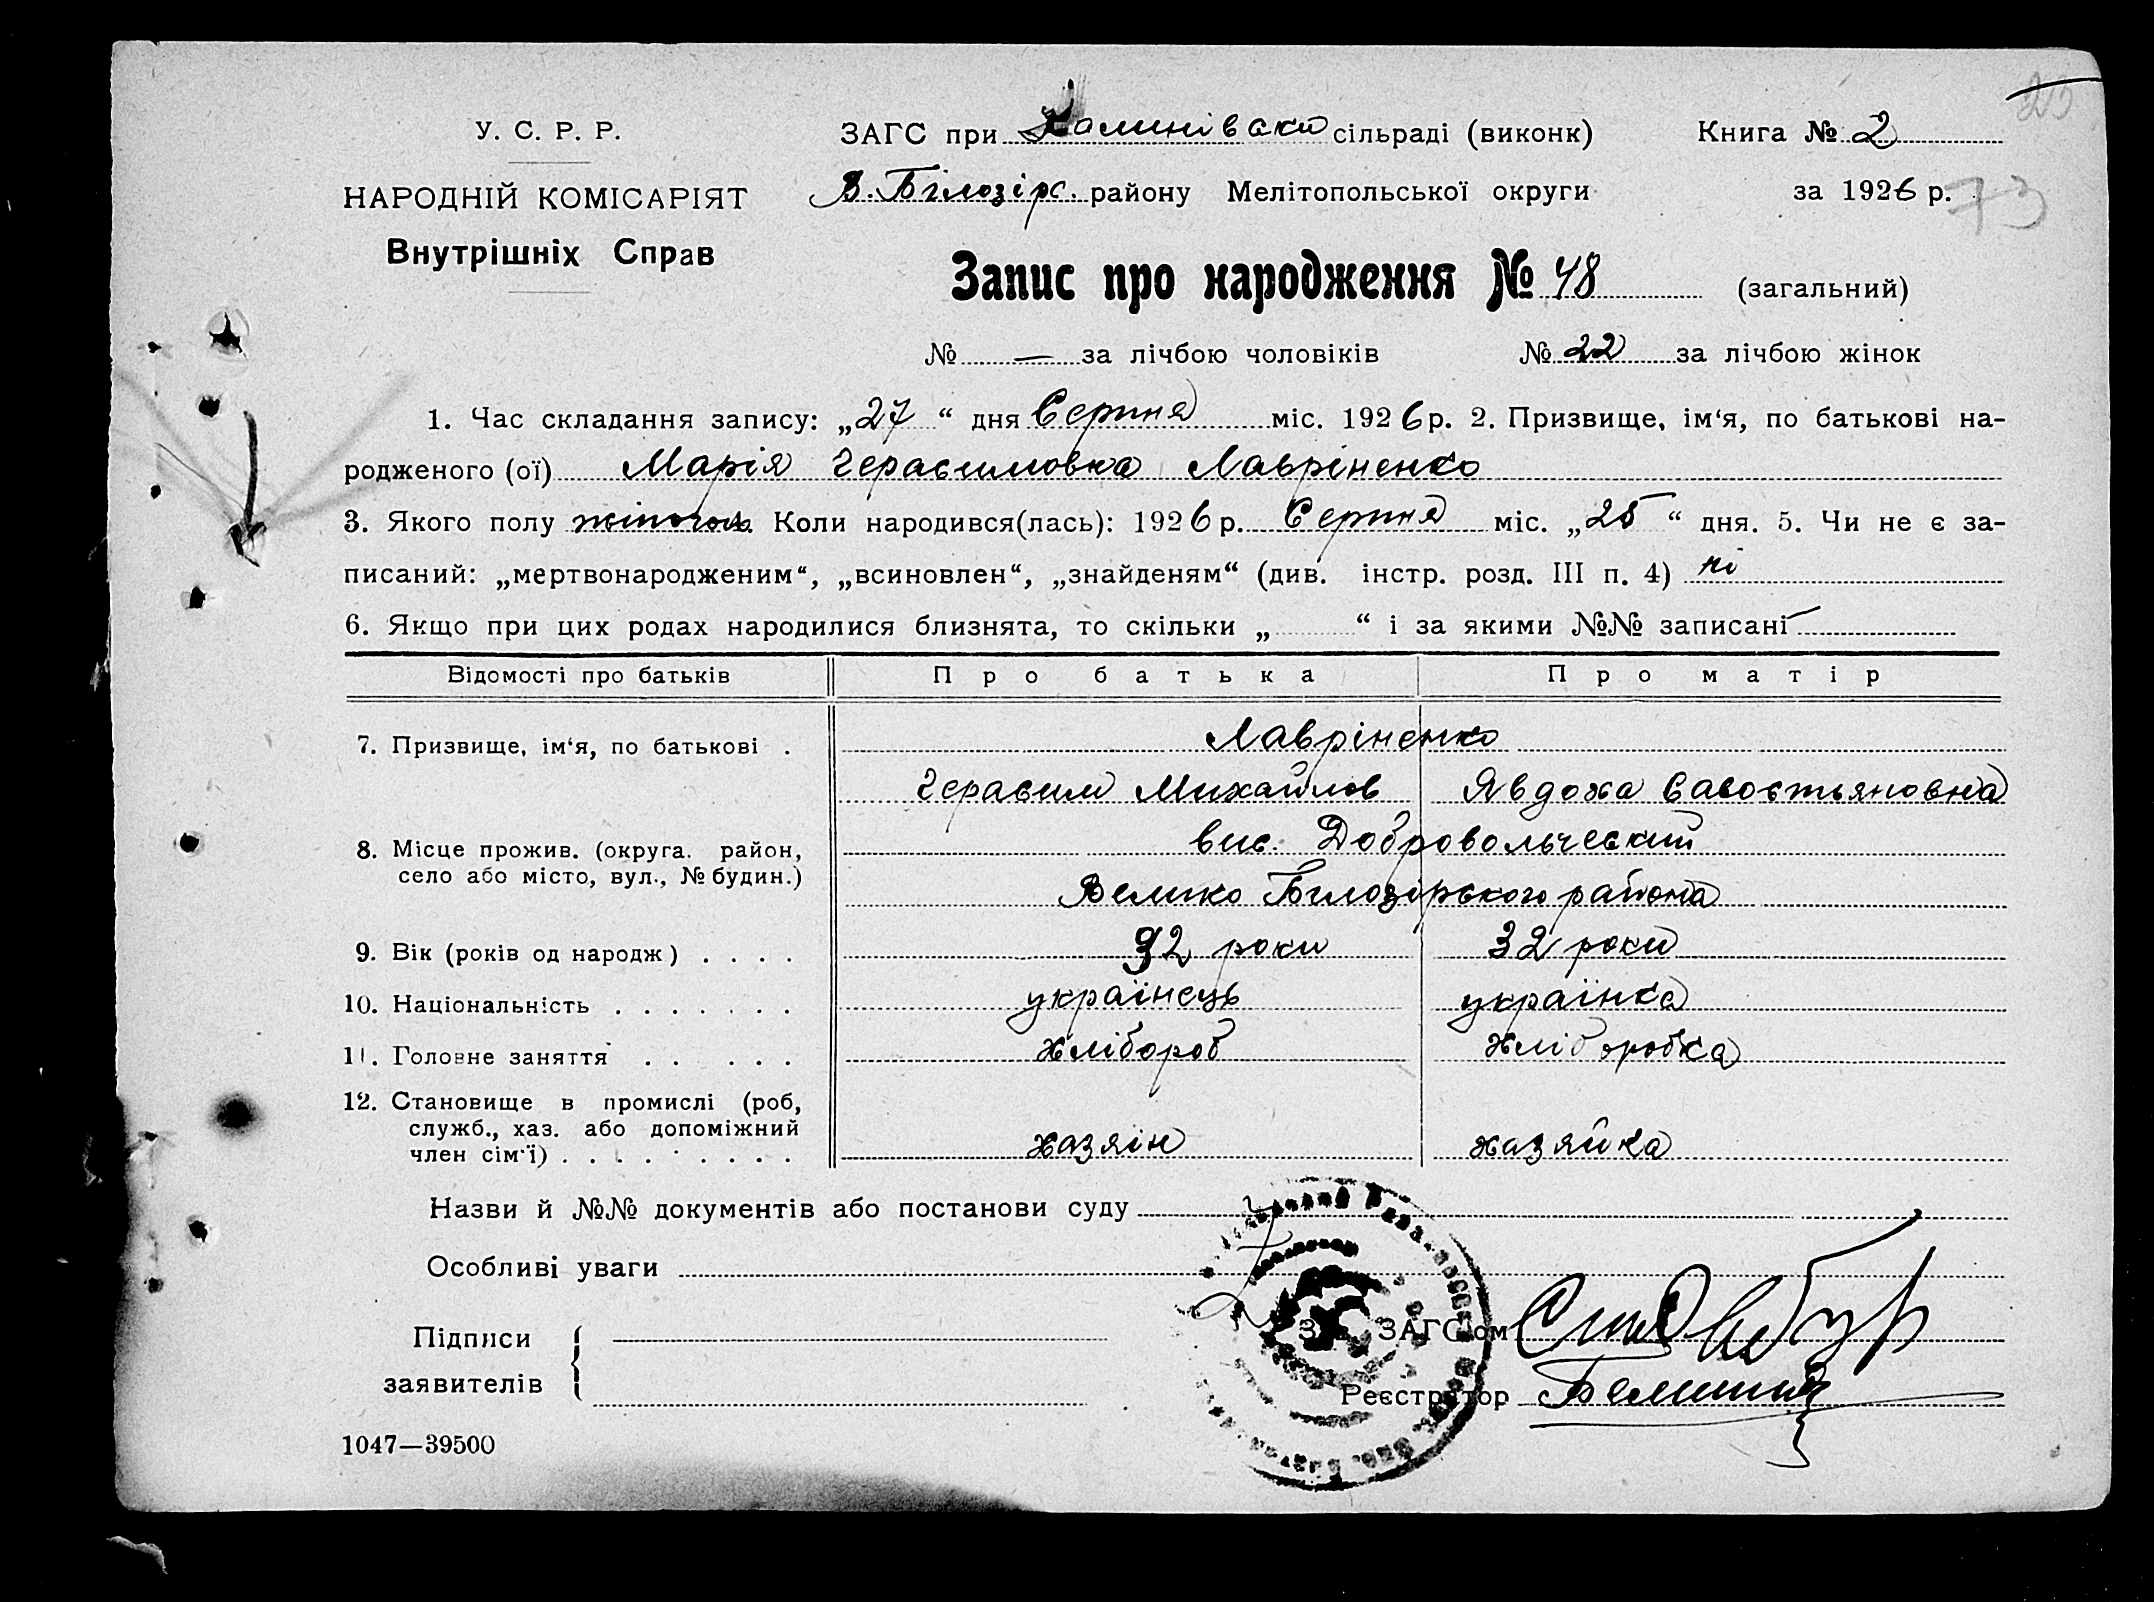 У. С. Р. Р.
НАРОДНІЙ КОМІСАРІЯТ
Внутрішніх Справ
ЗАГС при Калинівски сільраді (виконк)
Книга № 2
В. Білозірс. району Мелітопольської округи
за 1926 р.
73
Запис про народження № 48 (загальний)
№ — за лічбою чоловіків № 22 за лічбою жінок
1. Час складання запису: „27“ дня Серпня міс. 1926 р. 2. Призвище, ім‘я, по батькові на-
родженого (ої) Марія Герасимовна Лавріненко
3. Якого полу жіночого 4. Коли народився(лась): 1926 р. Серпня міс. „25“ дня. 5. Чи не є за-
писаний: „мертвонародженим“, „всиновлен“, „знайденям“ (див. інстр. розд. III п. 4) ні
6. Якщо при цих родах народилися близнята, то скільки „ “ і за якими №№ записані —
Відомості про батьків Про батька Про матір
7. Призвище, ім‘я, по батькові . Лавріненко
Герасим Михайлов Явдоха Савостьяновна
8. Місце прожив. (округа. район, вис. Добровольческий
село або місто, вул., № будин.)
Велико Білозірського района
9. Вік (років од народж) . . . . 32 роки 32 роки
10. Національність . . . . . . . українець українка
11. Головне заняття . . . . . хлібороб хліборобка
12. Становище в промислі (роб,
служб., хаз. або допоміжний
член сім‘ї) . . . . . . . . . хазяїн хазяйка
Назви й №№ документів або постанови суду
Особливі уваги
Підписи
заявителів
Зав. ЗАГС‘ом
Реєстратор
1047—39500